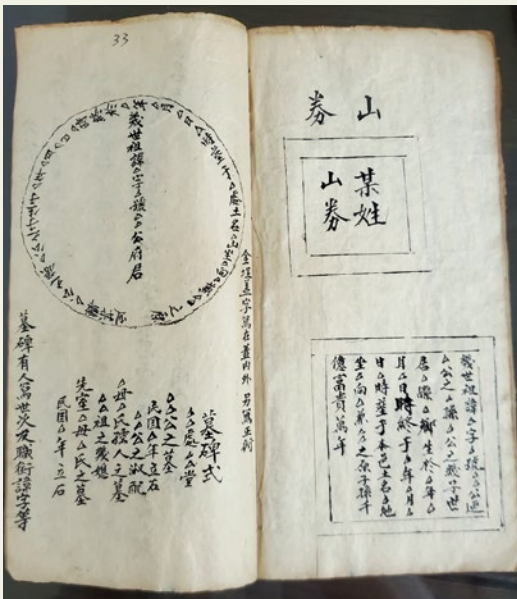 山券
某姓
山券
幾世祖諱△字△號△△公迺
△公之孫△公之幾子世
居△縣△鄉生於△年△
月△日時終于△年△月△
日△時葬于本邑土名△地
坐△向△兼△△之原子孫千
億富貴萬年
33
幾世祖諱△字△號△△公府君
金埕蓋字寫在蓋內外另寫正祠
墓碑式
△處△△堂
△△公之墓
民國△年立石
△△公之淑配
△母△氏孺人之墓
△△祖之幾媳
先室△母△氏之墓
民國△年立石
墓碑有人寫世次及職銜諱字等